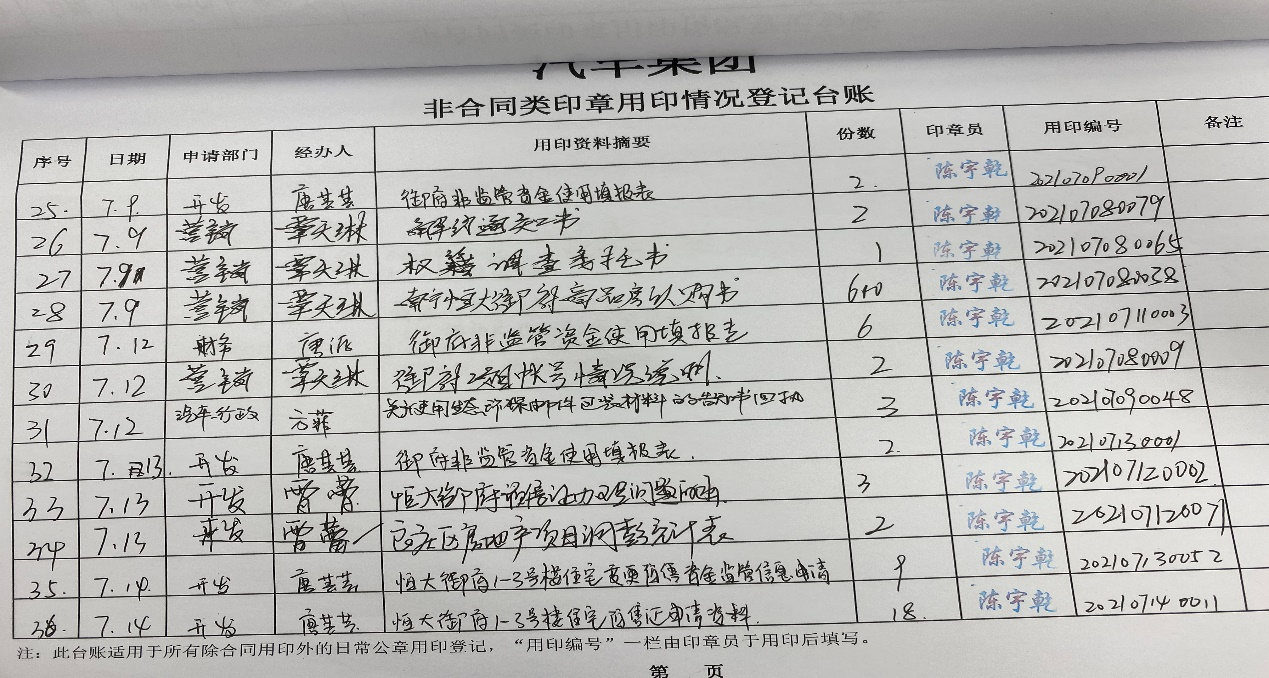 汽车集团
非合同类印章用印情况登记台账
序号 日期 申请部门 经办人 用印资料摘要 份数 印章员 用印编号 备注
25. 7.9. 开发 唐芸芸 御府非监管资金使用填报表 2. 陈宇乾 202107090001
26 7.9 覃天琳 2 陈宇乾 202107080079
27 7.9 覃天琳 权籍调查委托书 1 陈宇乾 202107080065
28 7.9 覃天琳 南宁恒大御府商品房认购书 600 陈宇乾 202107080038
29 7.12 财务 唐派 御府非监管资金使用填报表 6 陈宇乾 202107110003
30 7.12 覃天琳 2 陈宇乾 202107080009
31 7.12 汽车-行政 方菲 关于使用生态环保邮件包装材料的告知书回执 3 陈宇乾 202107090048
32 7.13. 开发 唐芸芸 御府非监管资金使用填报表. 2. 陈宇乾 202107130001
33 7.13 开发 恒大御府预售证办理 3 陈宇乾 202107120002
34 7.13 开发 区房地产项目 统计表 2 陈宇乾 202107120071
35. 7.14. 开发 唐芸芸 恒大御府1-3号楼住宅变更预售资金监管信息申请 9 陈宇乾 202107130052
36. 7.14 开发 唐芸芸 恒大御府1-3号楼住宅预售证申请资料. 18. 陈宇乾 202107140011
注：此台账适用于所有除合同用印外的日常公章用印登记，“用印编号”一栏由印章员于用印后填写。
第 页